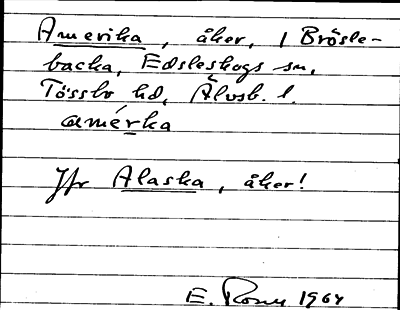 Amerika, åker, / Brösle-
backa, Edsleskogs sn,
Tössbo hd, Älvsb. l.
amérka
Jfr Alaska, åker!
E. 1964